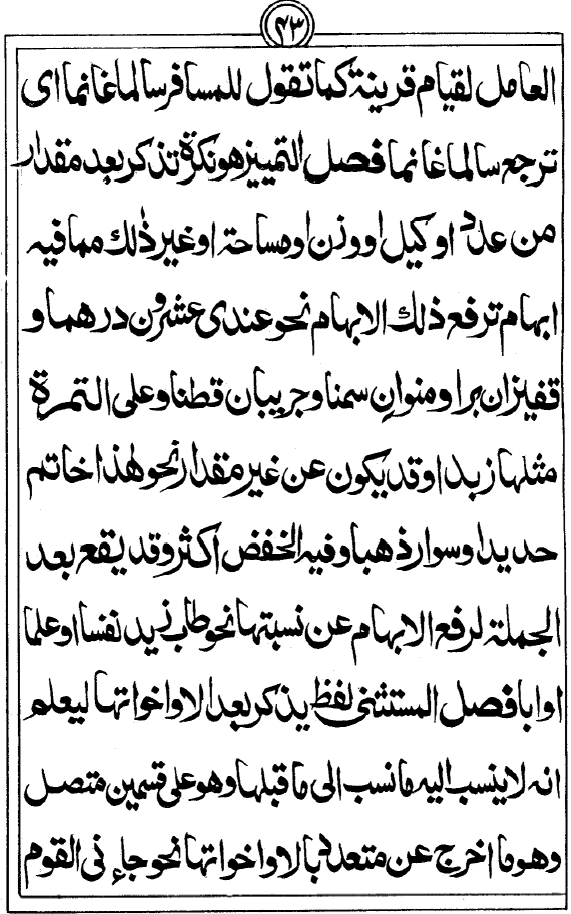 ۴۳
العامل لقيام قرينة كما تقول للمسافر سالما غانما اى
ترجع سالما غانما فصل التمييز هو نكرة تذكر بعد مقدار
من عدد او كيل او وزن او مساحة او غير ذٰلك مما فيه
ابهام ترفع ذلك الابهام نحو عندى عشرون درهما و
قفيزان برا و منوان سمنا و جريبان قطنا و على التمرة
مثلها زبدا و قد يكون عن غير مقدار نحو هٰذا خاتم
حديدا و سوار ذهبا و فيه الخفض اكثر و قد يقع بعد
الجملة لرفع الابهام عن نسبتها نحو طاب زيد نفسا او علما
او ابا فصل المستثنى لفظ يذكر بعد الا و اخواتها ليعلم
انه لا ينسب اليه ما نسب الى ما قبلها و هو على قسمين متصل
و هو ما اخرج عن متعدد بالا و اخواتها نحو جاءنى القوم